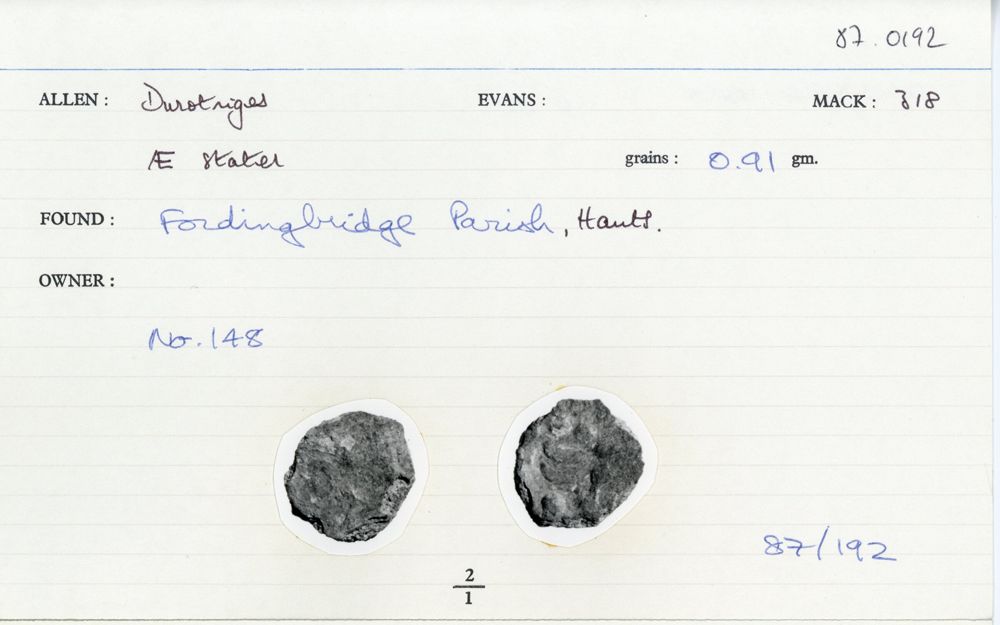 87.0192
ALLEN : Durotriges EVANS : MACK : 318
Æ stater grains : 0.91 gm.
FOUND : Fordingbridge Parish, Hants.
OWNER :
No. 148
87/192
2
1